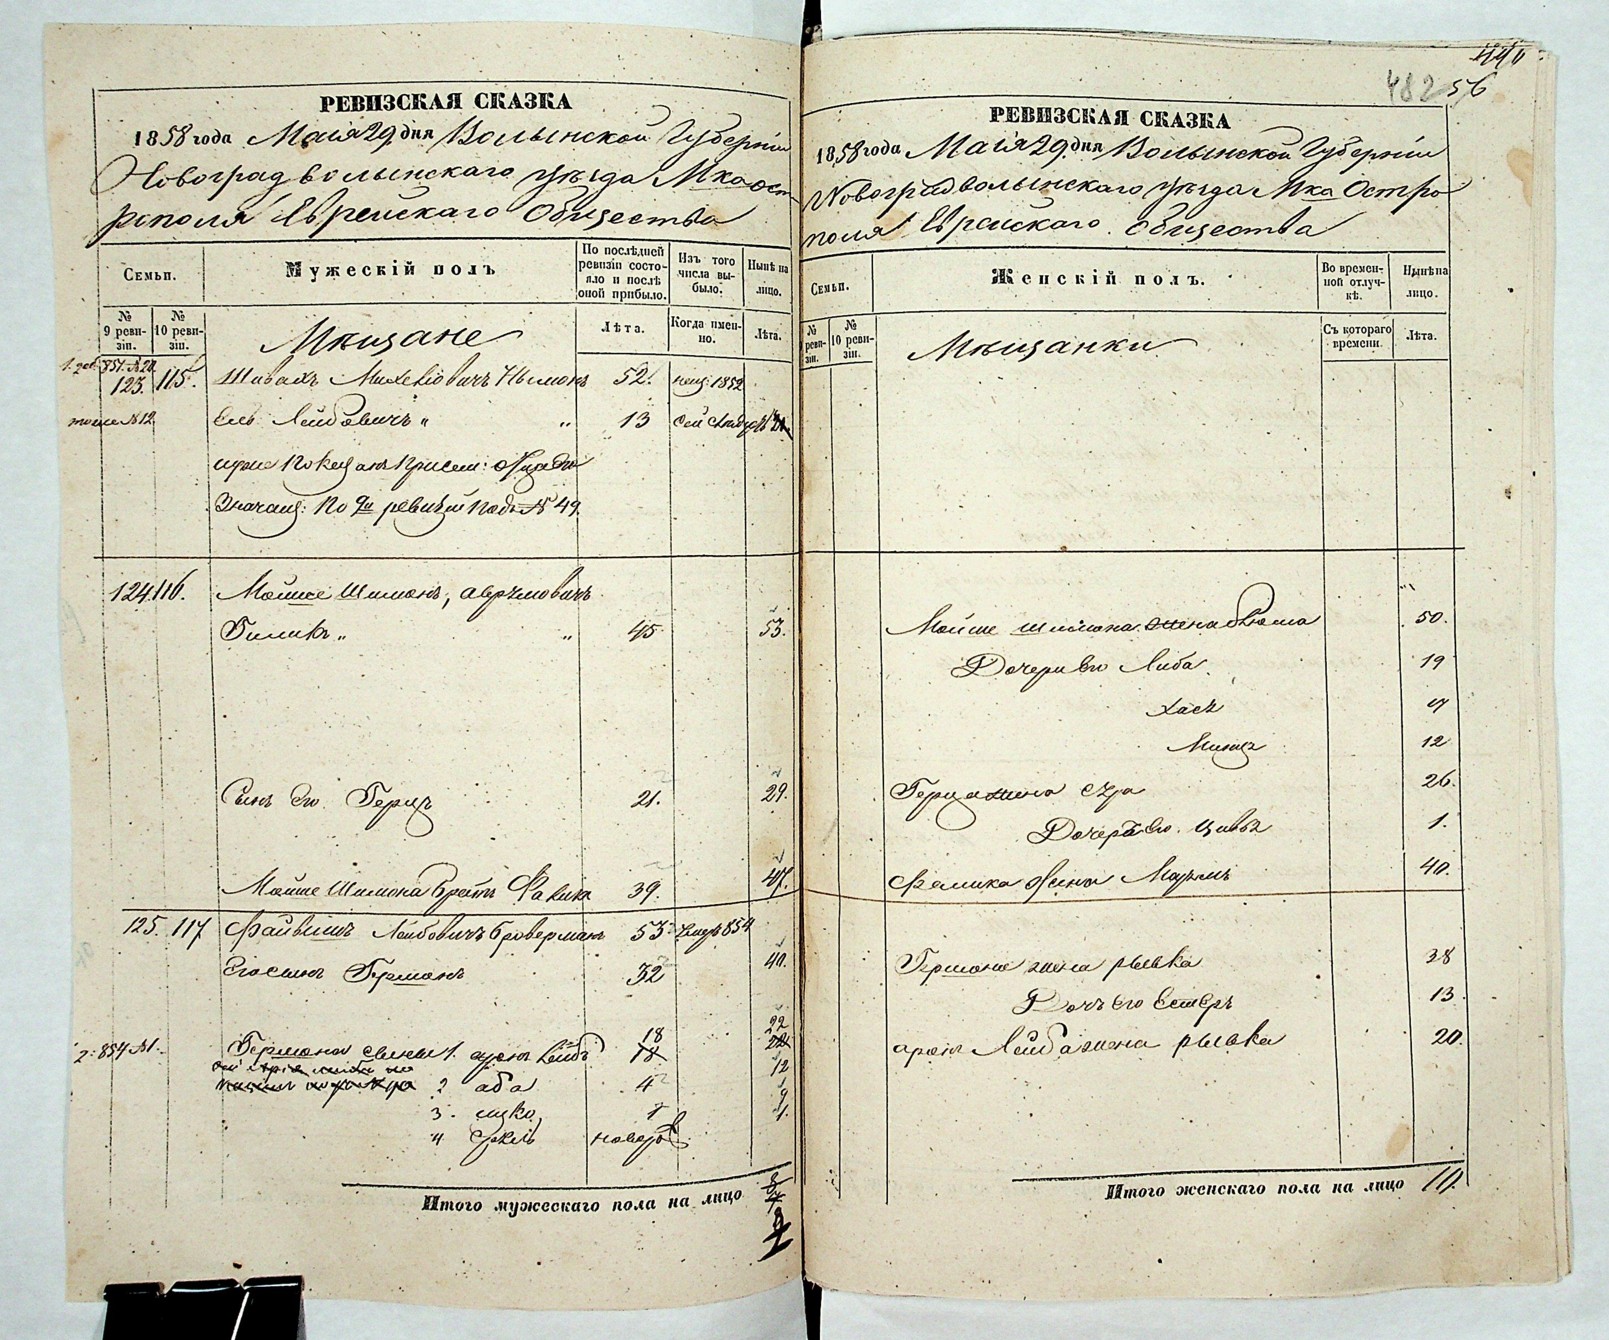 РЕВИЗСКАЯ СКАЗКА
1858 года Маія 29 дня Волынской Губерніи
Новоградволынскаго уѣзда Мка Ост
рополя Еврейскаго Общества
Семьи.
Мужескій полъ
По послѣдней ревизіи состояло и послѣ оной прибыло.
Изъ того числа выбыло.
Нынѣ на лицо.
№ 9 ревизіи.
№ 10 ревизіи.
Мѣщане
Лѣта.
Когда именно.
Лѣта.
851. №20
123. 115. Шваахъ 52. 1852
тоже №12 Лейбовичъ „ „ 13
По 9й ревизіи подъ №49.
124. 116. Мойше Шимонъ, Аврумовичъ
„ „ 45. 53.
Сынъ Его Герцъ 21. 29.
Мойше Шимона Братъ 39. 47.
125. 117 Файвишъ Лейбовичъ Броверманъ 53. 854
Его сынъ Гершонъ 32 40.
22
2: 854 №1. Гершона сыны 1. аронъ Лейбъ 18 18 22
2 аба 4 12
3. ицко 1 9
4 новоро 1.
Итого мужескаго пола на лицо
440
482 56
РЕВИЗСКАЯ СКАЗКА
1858 года Маія 29 дня Волынской Губерніи
Новоградволынскаго уѣзда Мка Остро
поля Еврейскаго Общества
Семьи.
Женскій полъ.
Во временной отлучкѣ.
Нынѣ на лицо.
№ ревизіи.
№ 10 ревизіи.
Мѣщанки
Съ котораго времени.
Лѣта.
Мойше Шимона жена 50.
Дочери Его Либа 19
Хася
12
Герца жена Сура 26.
Дочерь Его. Цивья 1.
жена Марьямъ 40.
Гершона жена Рывка 38
Дочь Его Естеръ 13.
аронъ Лейба жена Рывка 20.
Итого женскаго пола на лицо 10.